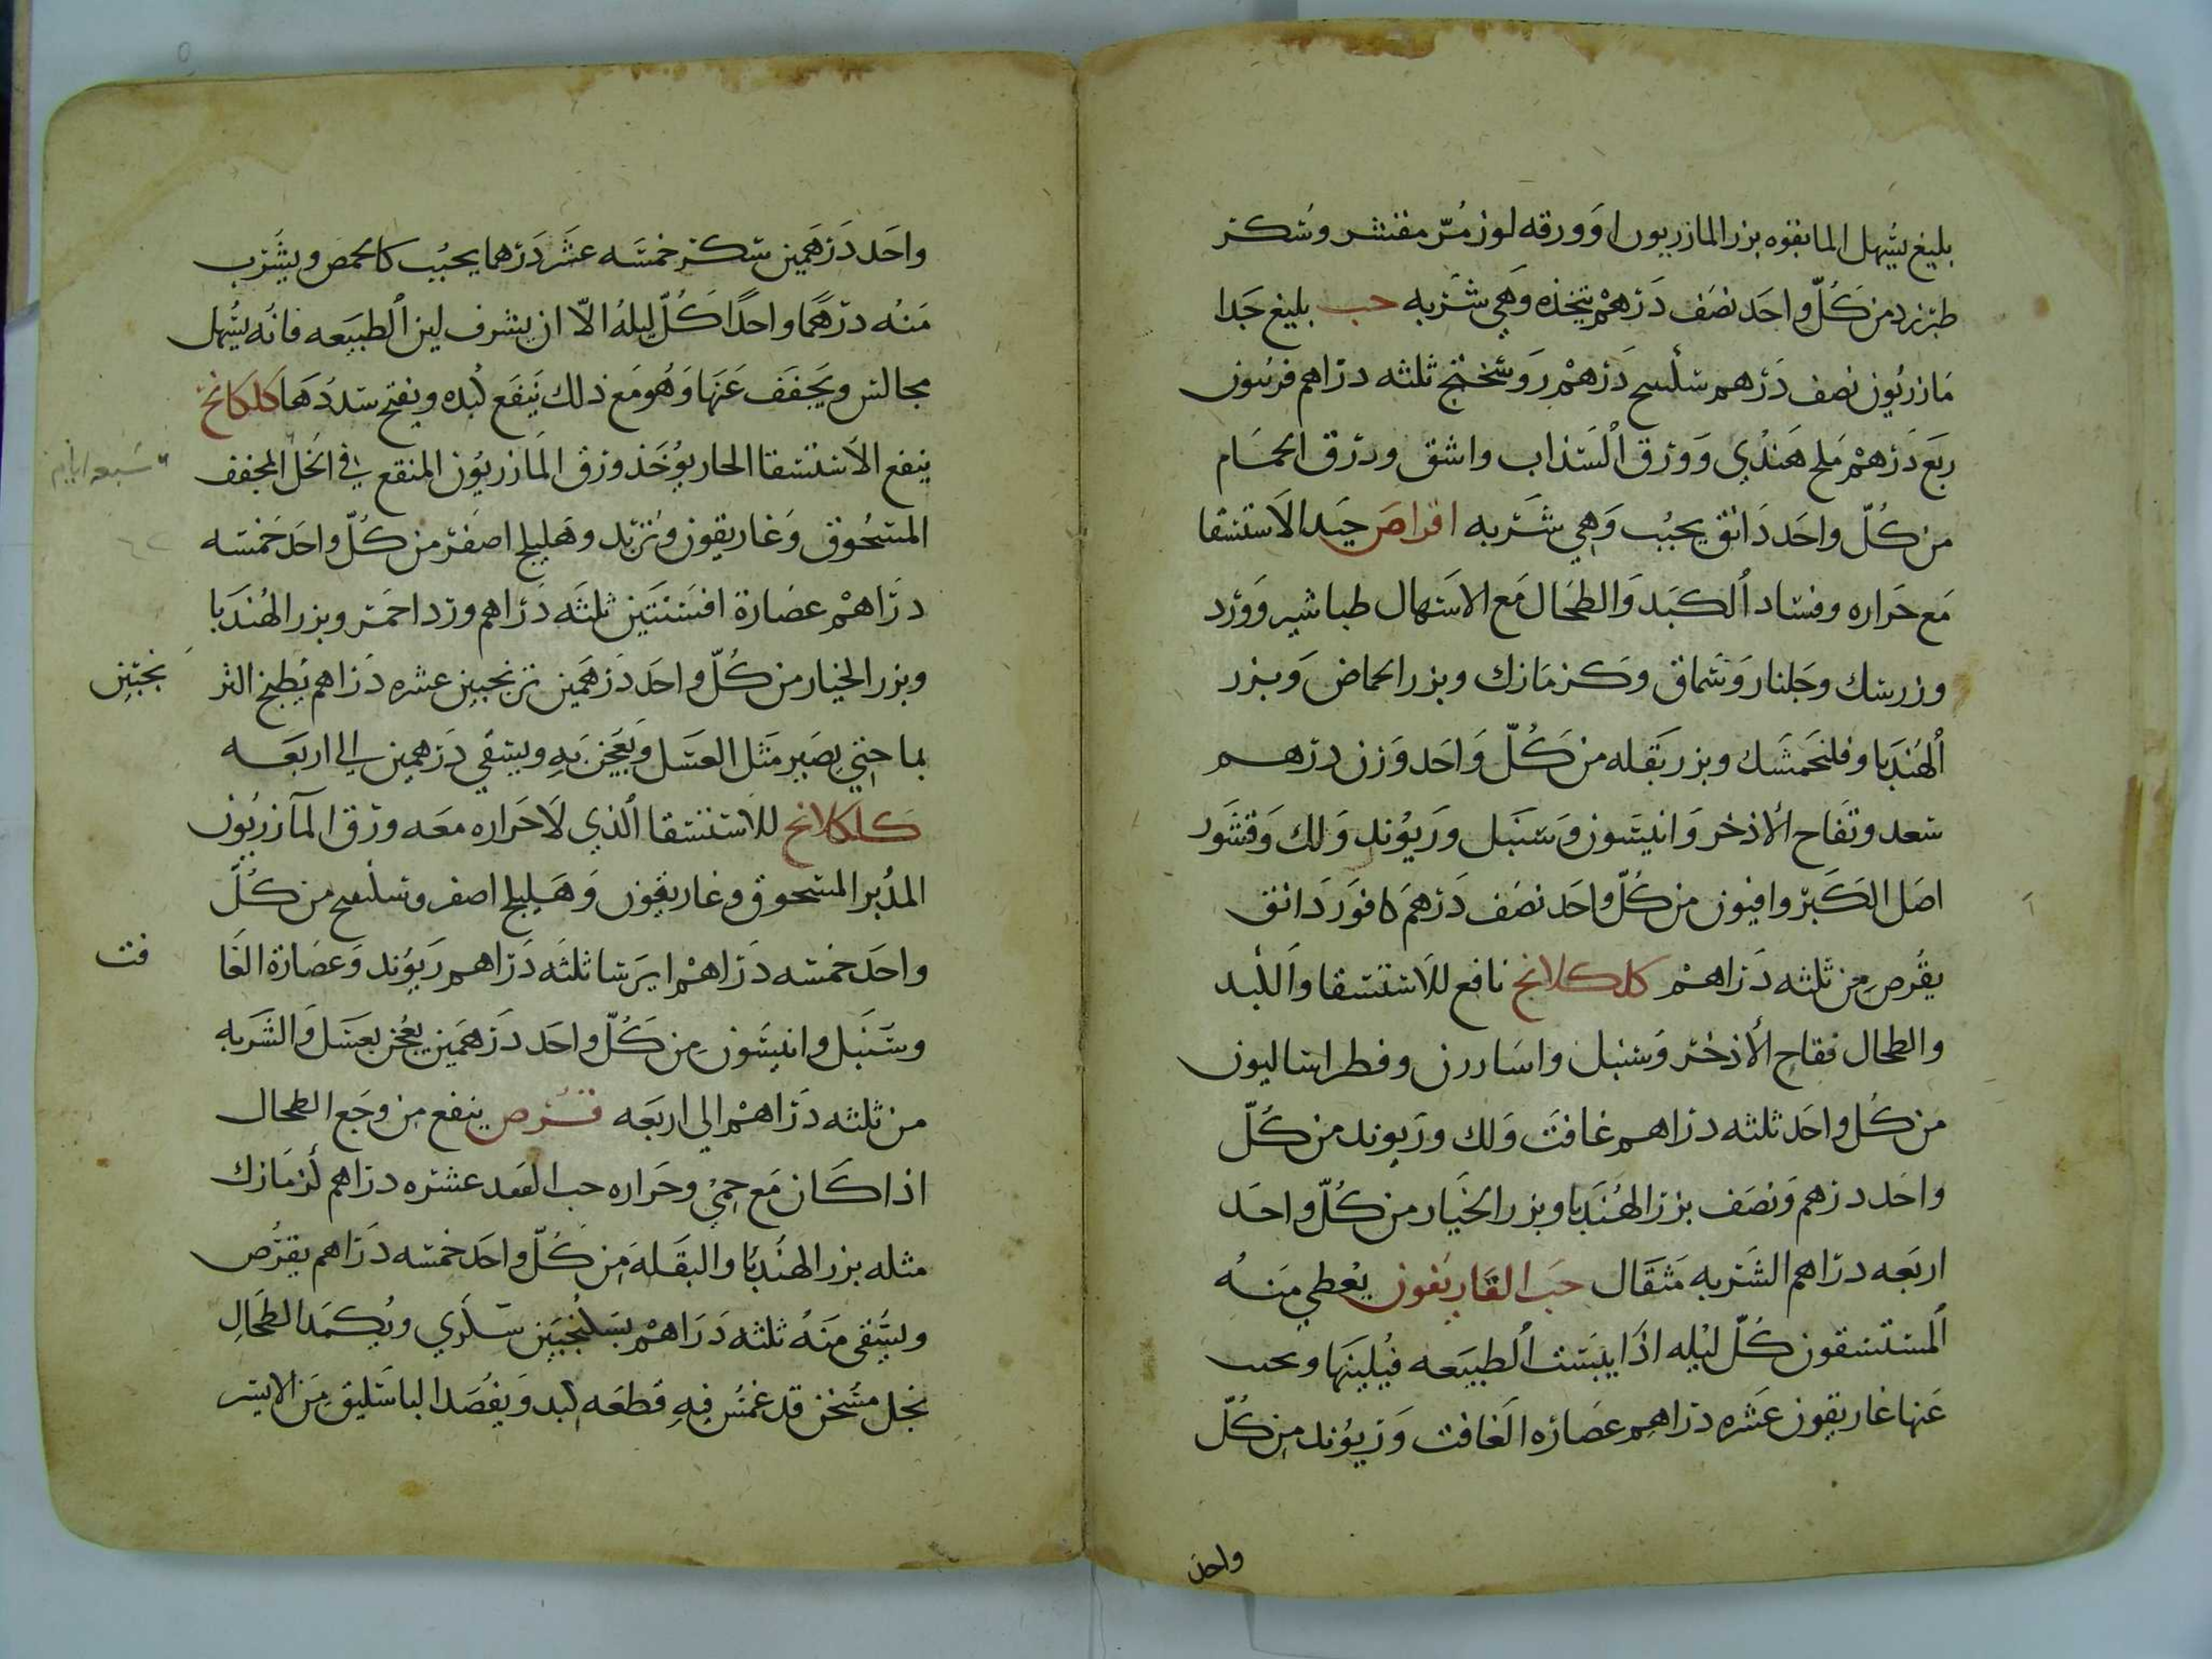 بليغ يسهل الما بقوه بزر المازريون او ورقه لوز مُرّ مقشر وسكر
طبرزد من كُلّ واحد نصف درهم يتخذه وهي شربه حب بليغ جدا
مازريون نصف درهم درهم روسختج ثلثه دراهم فربيون
ربع درهم ملح هندي وورق السذاب واشق وذرق الحمام
من كُلّ واحد دانق يحبب وهي شربه اقراص جيد الاستسقا
مع حراره وفساد الكبد والطحال مع الاسهال طباشير وورد
وزرشك وجلنار وسماق وكزمازك وبزر الحماض وبزر
الهندبا وفلنجمشك وبزر بقله من كُلّ واحد وزن درهم
سعد وتفاح الاذخر وانيسون وسنبل وريوند ولك وقشور
اصل الكبر وافيون من كُلّ واحد نصف درهم كافور دانق
يقرص من ثلثه دراهم كلكلانج نافع للاستسقا والكبد
والطحال فقاح الاذخر وسنبل واسارون وفطراساليون
من كُل واحد ثلثه دراهم غافت ولك وريوند من كُلّ
واحد درهم ونصف بزر الهندبا وبزر الخيار من كُلّ واحد
اربعه دراهم الشربه مثقال حب الغاريقون يعطي منه
المستسقون كُلّ ليله اذا يبست الطبيعه فيلينها
عنها غاريقون عشره دراهم عصاره الغافت وريوند من كُلّ
واحد
واحد درهمين سكر خمسه عشر درهما يحبب كالحمص ويشرب
منه درهما واحدًا كُلّ ليله الّا ان يشرف لين الطبيعه فانه يسهل
مجالس ويجفف عنها وهو مع ذلك ينفع كبده ويفتح سددها كلكلانج
ينفع الاستسقا الحار يوخذ ورق المازريون المنقع في الخل المجفف
سبعه ايام
المسحوق وغاريقون وتربد وهليلج اصفر من كُلّ واحد خمسه
دراهم عصارة افسنتين ثلثه دراهم ورد احمر وبزر الهندبا
وبزر الخيار من كُلّ واحد درهمين ترنجبين عشره دراهم يطبخ التر
نجبين
بما حتي يصير مثل العسل ويعجن به ويسقي درهمين الي اربعه
كلكلانج للاستسقا الذي لا حراره معه ورق المازريون
المدبر المسحوق وغاريقون وهليلج اصفر من كُلّ
واحد خمسه دراهم ايرسا ثلثه دراهم ريوند وعصارة الغا
فت
وسنبل وانيسون من كُلّ واحد درهمين يعجن بعسل والشربه
من ثلثه دراهم الي اربعه قرص ينفع من وجع الطحال
اذا كان مع حمي وحراره حب الفقد عشره دراهم كزمازك
مثله بزر الهندبا والبقله من كُلّ واحد خمسه دراهم يقرص
ويسقي منه ثلثه دراهم بسكنجبين سكري ويكمد الطحال
بخل مسخن قد غمس فيه قطعه لبد ويفصد الباسليق من الايسر